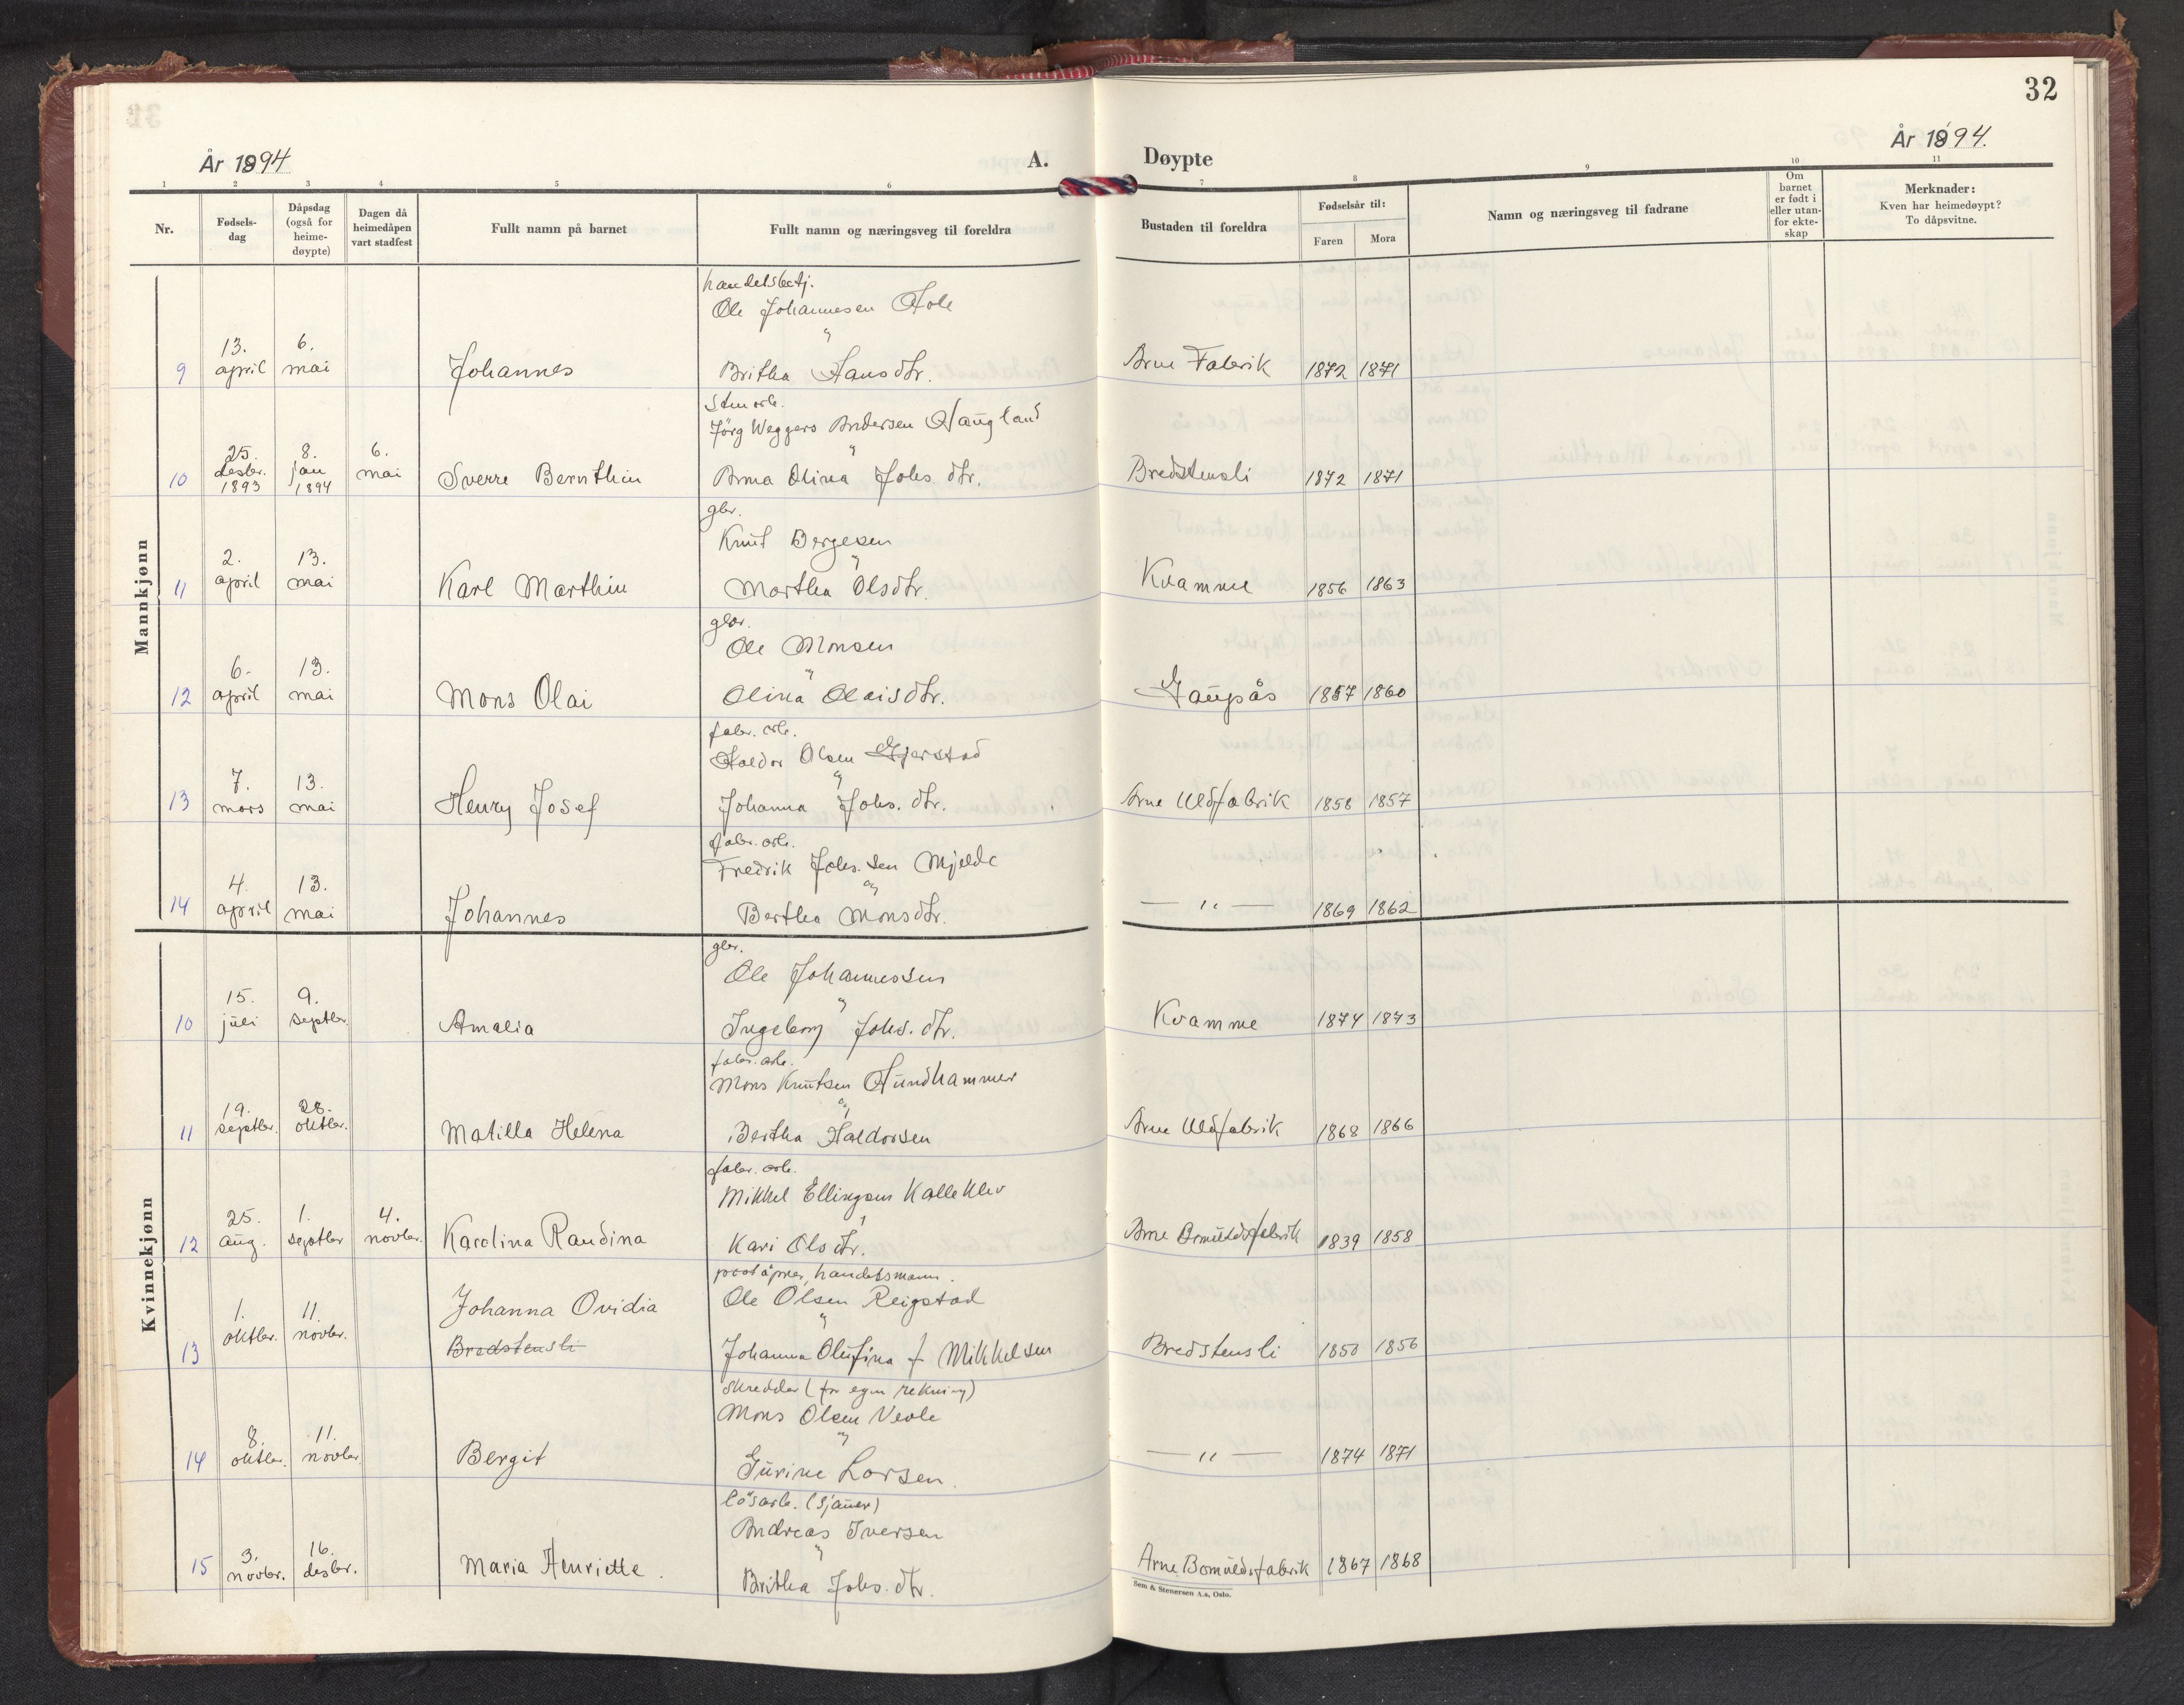 32
År 1894
A.
Døypte
År 1894.
1 2 3 4 5 6 7 8 9 10 11
Nr.
Fødselsdag
Dåpsdag (også for heimedøypte)
Dagen då heimedåpen vart stadfest
Fullt namn på barnet
Fullt namn og næringsveg til foreldra
Bustaden til foreldra
Fødselsår til:
Faren
Mora
Namn og næringsveg til fadrane
Om barnet er født i eller utanfor ekteskap
Merknader:
Kven har heimedøypt?
To dåpsvitne.
Mankjønn
handelsbetj.
Ole Johannesen Hole
og
9 13. april 6. mai Johannes Britha Hansdtr. Arne Fabrik 1872 1871
stenarb.
Jörg Weggers Andersen Haugland
og
10 25. desbr. 1893 8. jan 1894 6. mai Sverre Bernthin Anna Olina Johs. dtr. Bredstensli 1872 1871
gbr.
Knut Bergesen
og
11 2. april 13. mai Karl Marthin Martha Olsdtr. Kvamme 1856 1863
gbr.
Ole Monsen
og
12 6. april 13. mai Mons Olai Olina Olaisdtr. Gaupås 1857 1860
fabr. arb.
Haldor Olsen Gjerstad
og
13 7. mars 13. mai Henry Josef Johanna Johs. dtr. Arne Uldfabrik 1858 1857
fabr. arb.
Fredrik Johs. sen Mjelde
og
14 4. april 13. mai Johannes Bertha Monsdtr. — " — 1869 1862
Kvinnekjønn
gbr.
Ole Johannessen
og
10 15. juli 9. septbr. Amalia Ingeborg Johs. dtr. Kvamme 1874 1873
fabr. arb.
Mons Knutsen Hundhammer
og
11 19. septbr. 28. oktbr. Matilla Helena Bertha Haldorsen Arne Uldfabrik 1868 1866
fabr. arb.
Mikkel Ellingsen Kalleklev
12 25. aug. 1. septbr 4. novbr. Karolina Randina Kari Olsdtr. Arne Bomuldsfabrik 1839 1858
poståpner, handelsmann.
Johanna Ovidia Ole Olsen Reigstad
og
13 1. oktbr. 11. novbr. Bredstensli Johanna Olufina f Mikkelsen Bredstensli 1850 1856
skredder (for egen rekning)
Mons Olsen Vevle
og
14 8. oktbr. 11. novbr. Bergit Gurine Larsen. — " — 1874 1871
lösarb. (sjauer)
Andreas Iversen
og
15 3. novbr. 16. desbr. Maria Henriette. Britha Johs. dtr. Arne Bomuldsfabrik 1867 1868
Sem & Stenersen A.s, Oslo.